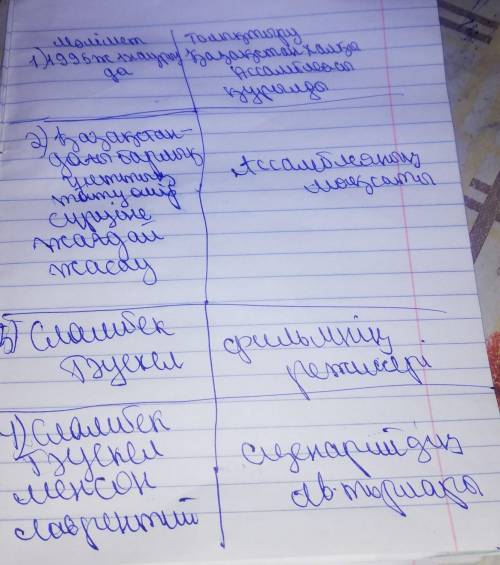 Мәлімет
Толықтыру
1) 1995 ж 1 наурыз
да
Қазақстан халқы
Ассамблеясы
құрылды
2) Қазақстан-
дағы барлық
ұлттың
тату өмір
сүруіне
жағдай
жасау
Ассамблеяның
мақсаты
3) Сламбек
Тәуекел
фильмнің
режисері
4) Сламбек
Тәуекел
Менсон
Лаврентий
сценарийдің
авторлары